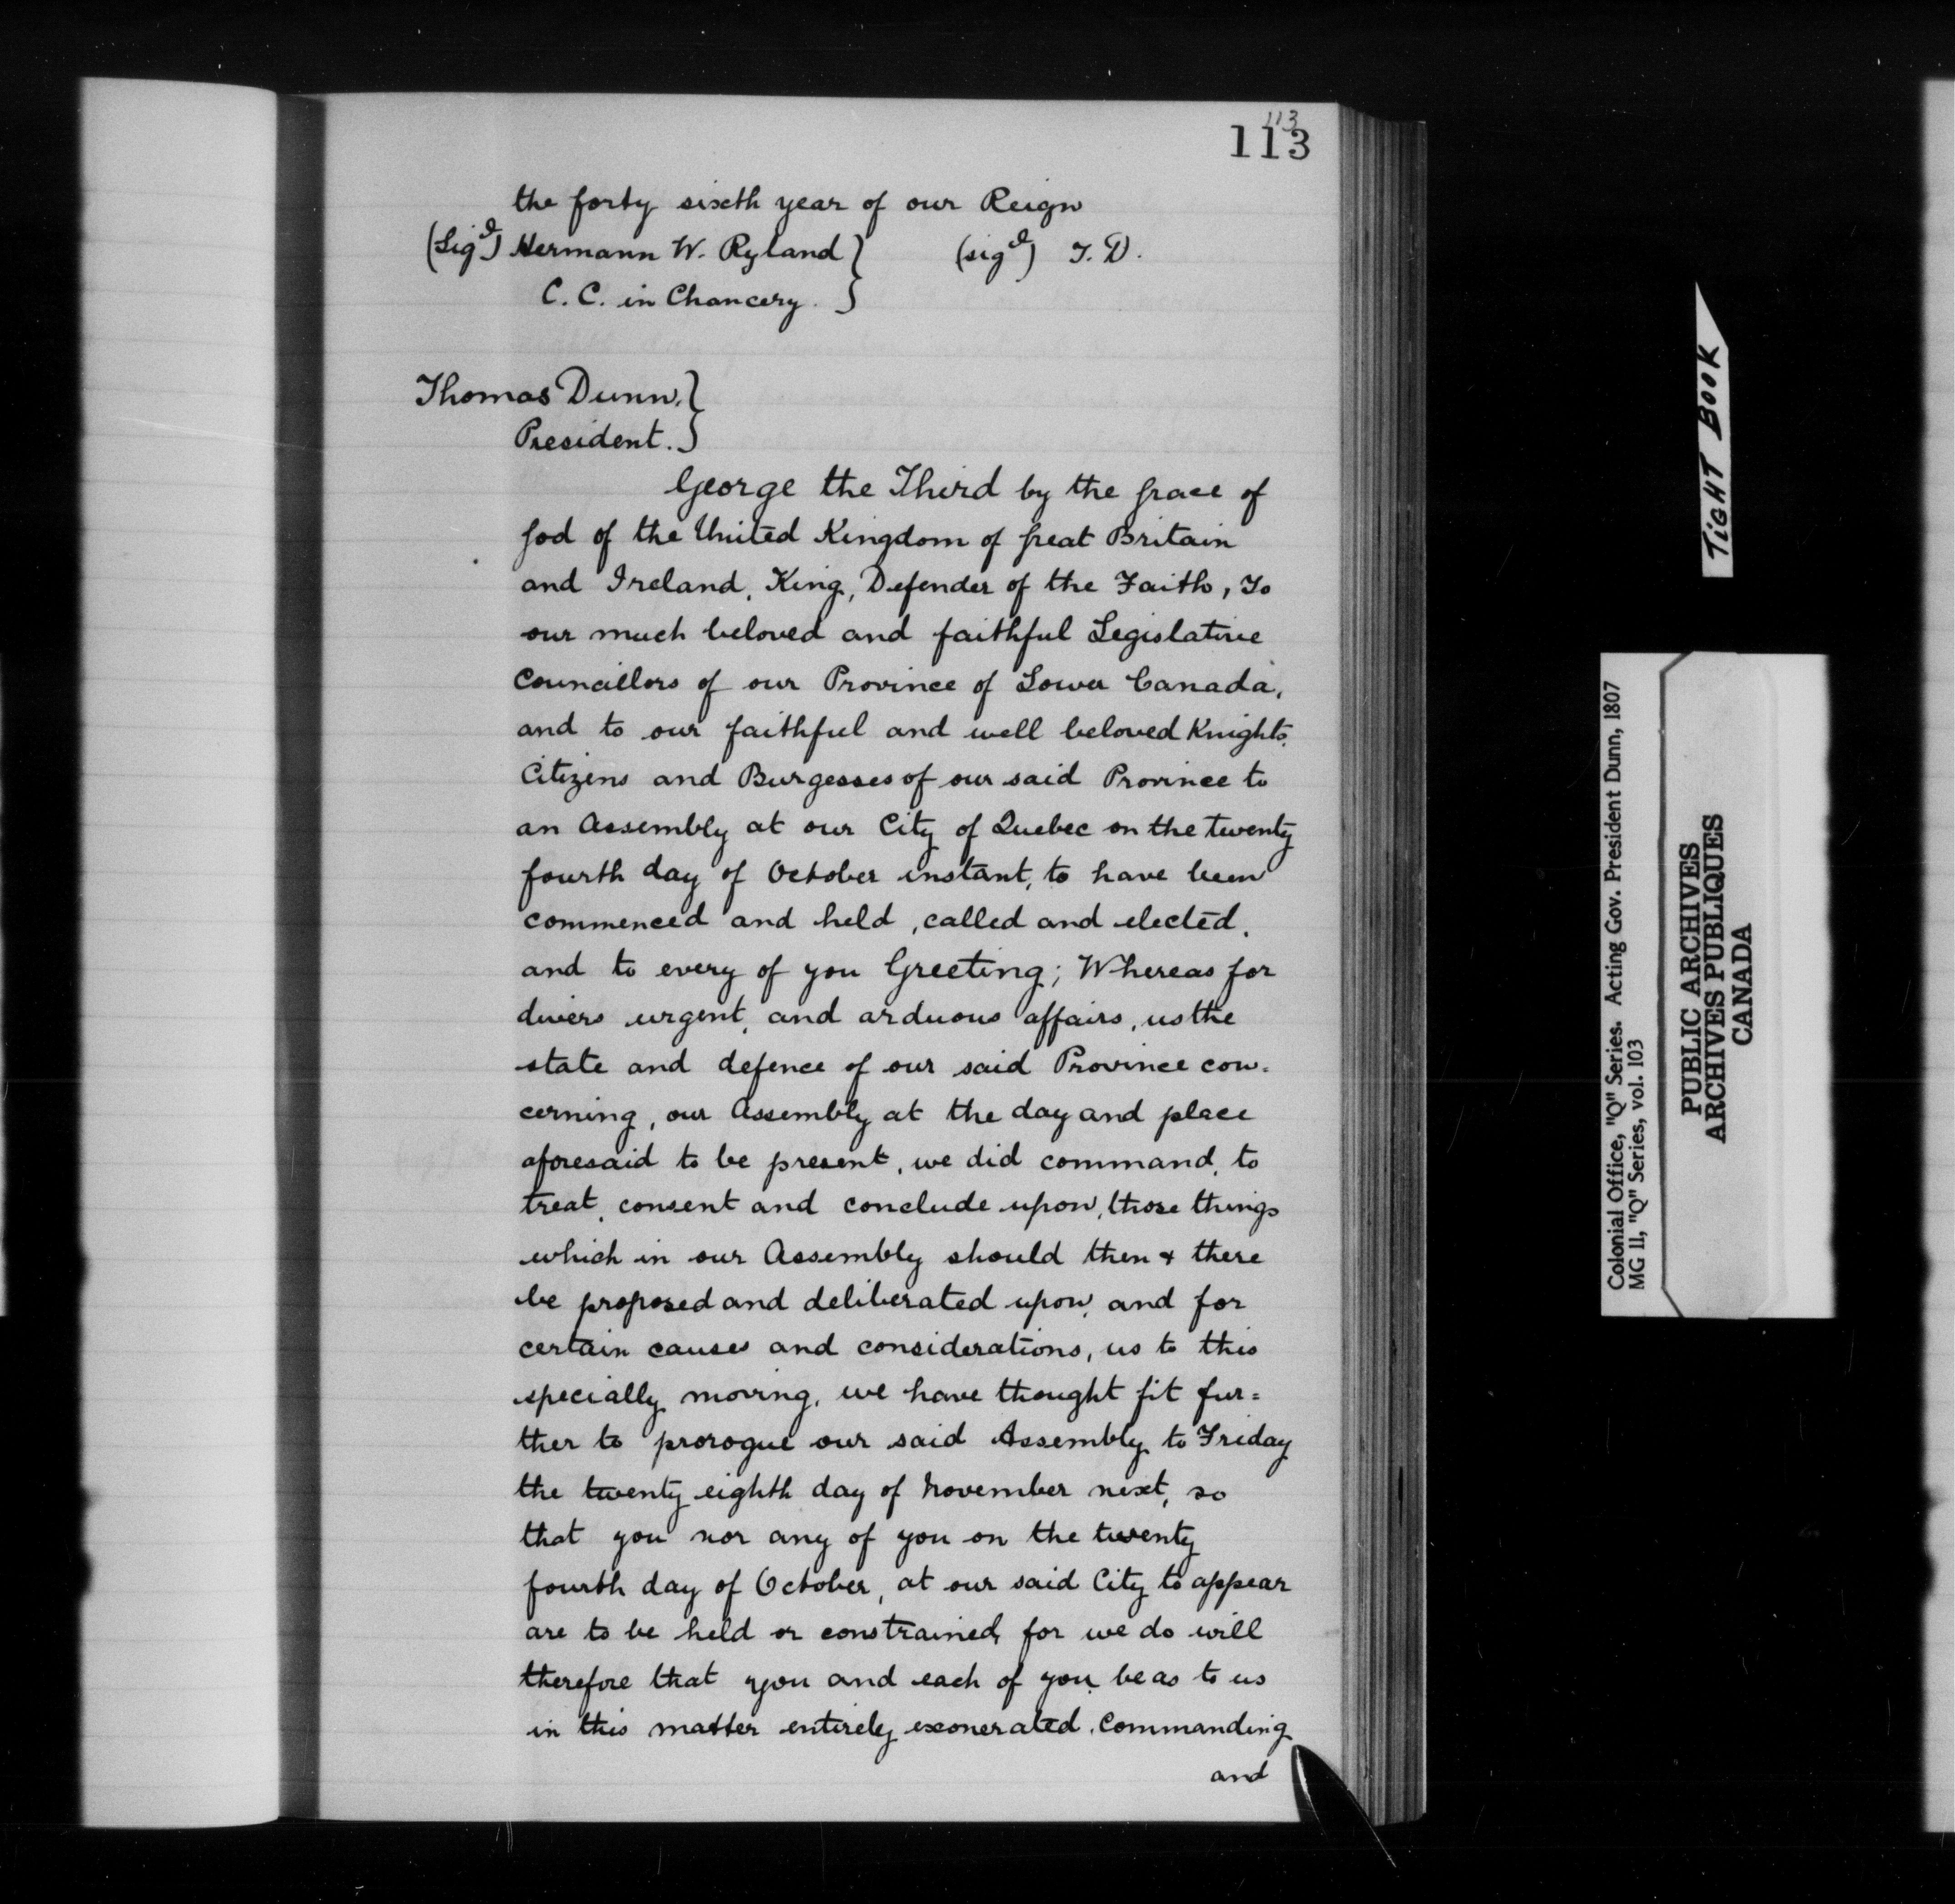 113
113
the forty sixth year of our Reign
(Sigd) Hermann W. Ryland } (sigd) T. D.
C. C. in Chancery. }
Thomas Dunn. }
President. }
George the Third by the grace of
god of the United Kingdom of great Britain
and Ireland, King, Defender of the Faith, To
our much beloved and faithful Legislative
Councillors of our Province of Lower Canada,
and to our faithful and well beloved Knights,
Citizens and Burgesses of our said Province to
an Assembly at our City of Quebec on the twenty
fourth day of October instant, to have been
commenced and held, called and elected,
and to every of you Greeting; Whereas for
divers urgent, and arduous affairs, us the
state and defence of our said Province con-
cerning, our Assembly at the day and place
aforesaid to be present, we did command, to
treat, consent and conclude upon, those things
which in our Assembly should then & there
be proposed and deliberated upon, and for
certain causes and considerations, us to this
specially moving, we have thought fit fur=
ther to prorogue our said Assembly to Friday
the twenty eighth day of November next, so
that you nor any of you on the twenty
fourth day of October, at our said City to appear
are to be held or constrained, for we do will
therefore that you and each of you be as to us
in this matter entirely exonerated, Commanding
and
TIGHT BOOK
Colonial Office, "Q" Series. Acting Gov. President Dunn, 1807
MG 11, "Q" Series, vol. 103
PUBLIC ARCHIVES
ARCHIVES PUBLIQUES
CANADA